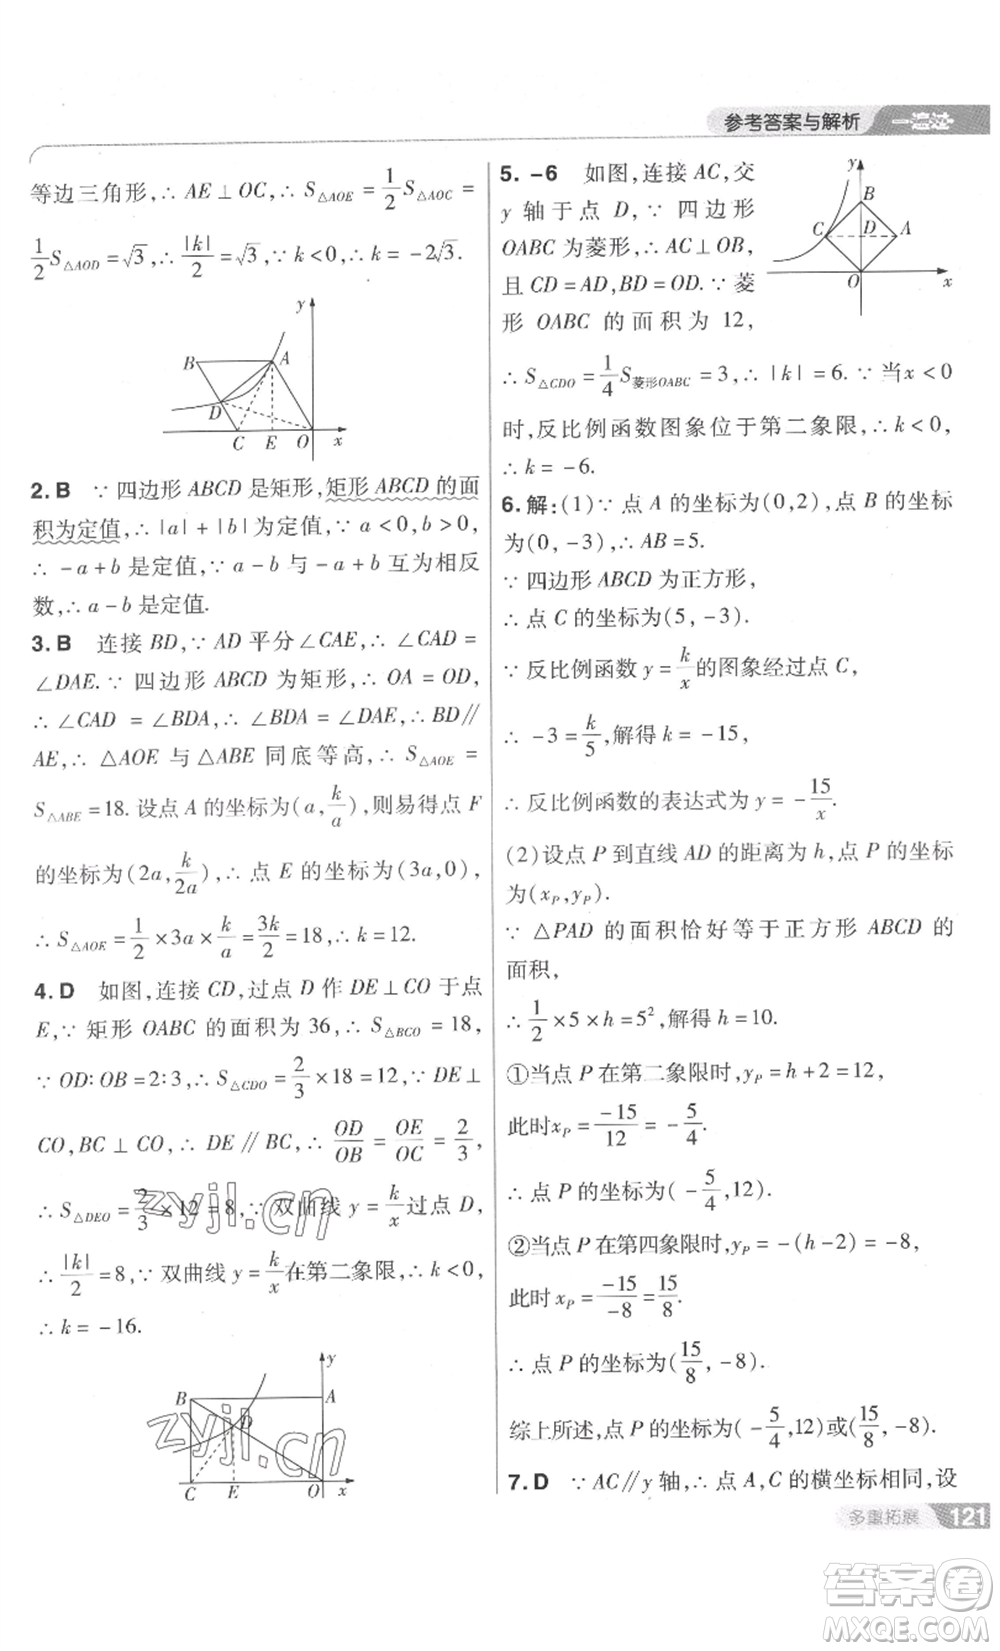 参考答案与解析
等边三角形,∴ AE⊥OC,∴ S△AOE = 1/2 S△AOC =
1/2 S△AOD = √3,∴ |k|/2 = √3,∵ k<0,∴ k = -2√3.
y
B
A
D
C
E
O
x
2. B ∵ 四边形 ABCD 是矩形,矩形 ABCD 的面
积为定值,∴ |a|+|b|为定值,∵ a<0,b>0,
∴ -a+b 是定值,∵ a-b 与 -a+b 互为相反
数,∴ a-b 是定值.
3. B 连接 BD,∵ AD 平分∠CAE,∴ ∠CAD =
∠DAE.∵ 四边形 ABCD 为矩形,∴ OA = OD,
∴ ∠CAD = ∠BDA,∴ ∠BDA = ∠DAE,∴ BD∥
AE,∴ △AOE 与 △ABE 同底等高,∴ S△AOE =
S△ABE = 18. 设点 A 的坐标为(a, k/a),则易得点 F
的坐标为(2a, k/2a),∴ 点 E 的坐标为(3a,0),
∴ S△AOE = 1/2 × 3a × k/a = 3k/2 = 18,∴ k = 12.
4. D 如图,连接 CD,过点 D 作 DE⊥CO 于点
E,∵ 矩形 OABC 的面积为 36,∴ S△BCO = 18,
∵ OD:OB = 2:3,∴ S△CDO = 2/3 × 18 = 12,∵ DE⊥
CO,BC⊥CO,∴ DE∥BC,∴ OD/OB = OE/OC = 2/3,
∴ S△DEO = 2/3 × 12 = 8,∵ 双曲线 y = k/x 过点 D,
∴ |k|/2 = 8,∵ 双曲线 y = k/x 在第二象限,∴ k<0,
∴ k = -16.
y
B
A
D
C
E
O
x
5. -6 如图,连接 AC,交
y 轴于点 D,∵ 四边形
OABC 为菱形,∴ AC⊥OB,
且 CD = AD,BD = OD.∵ 菱
形 OABC 的面积为 12,
y
B
C
D
A
O
x
∴ S△CDO = 1/4 S菱形OABC = 3,∴ |k| = 6.∵ 当 x<0
时,反比例函数图象位于第二象限,∴ k<0,
∴ k = -6.
6. 解:(1)∵ 点 A 的坐标为(0,2),点 B 的坐标
为(0,-3),∴ AB = 5.
∵ 四边形 ABCD 为正方形,
∴ 点 C 的坐标为(5,-3).
∵ 反比例函数 y = k/x 的图象经过点 C,
∴ -3 = k/5,解得 k = -15,
∴ 反比例函数的表达式为 y = -15/x.
(2)设点 P 到直线 AD 的距离为 h,点 P 的坐标
为(xP,yP).
∵ △PAD 的面积恰好等于正方形 ABCD 的
面积,
∴ 1/2 × 5 × h = 5²,解得 h = 10.
①当点 P 在第二象限时,yP = h+2 = 12,
此时 xP = -15/12 = -5/4.
∴ 点 P 的坐标为(-5/4,12).
②当点 P 在第四象限时,yP = -(h-2) = -8,
此时 xP = -15/-8 = 15/8.
∴ 点 P 的坐标为(15/8,-8).
综上所述,点 P 的坐标为(-5/4,12)或(15/8,-8).
7. D ∵ AC∥y 轴,∴ 点 A,C 的横坐标相同,设
多重拓展 121
zyjl.cn
zyjl.cn
答案卷
MXQE.COM